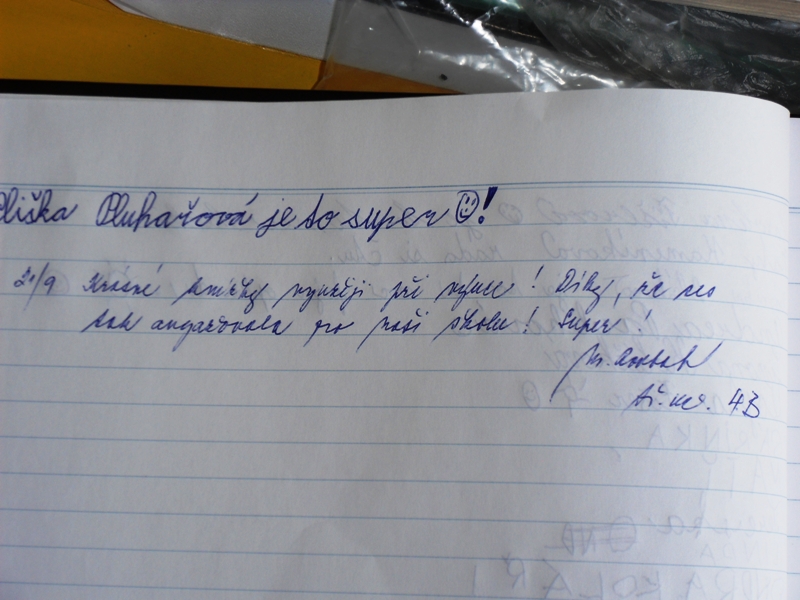 Eliška Pluhařová je to super ☺!
21/9 Krásné knížky využiji při výuce! Díky, že ses
tak angažovala pro naši školu! Super!
tř. uč. 4.B